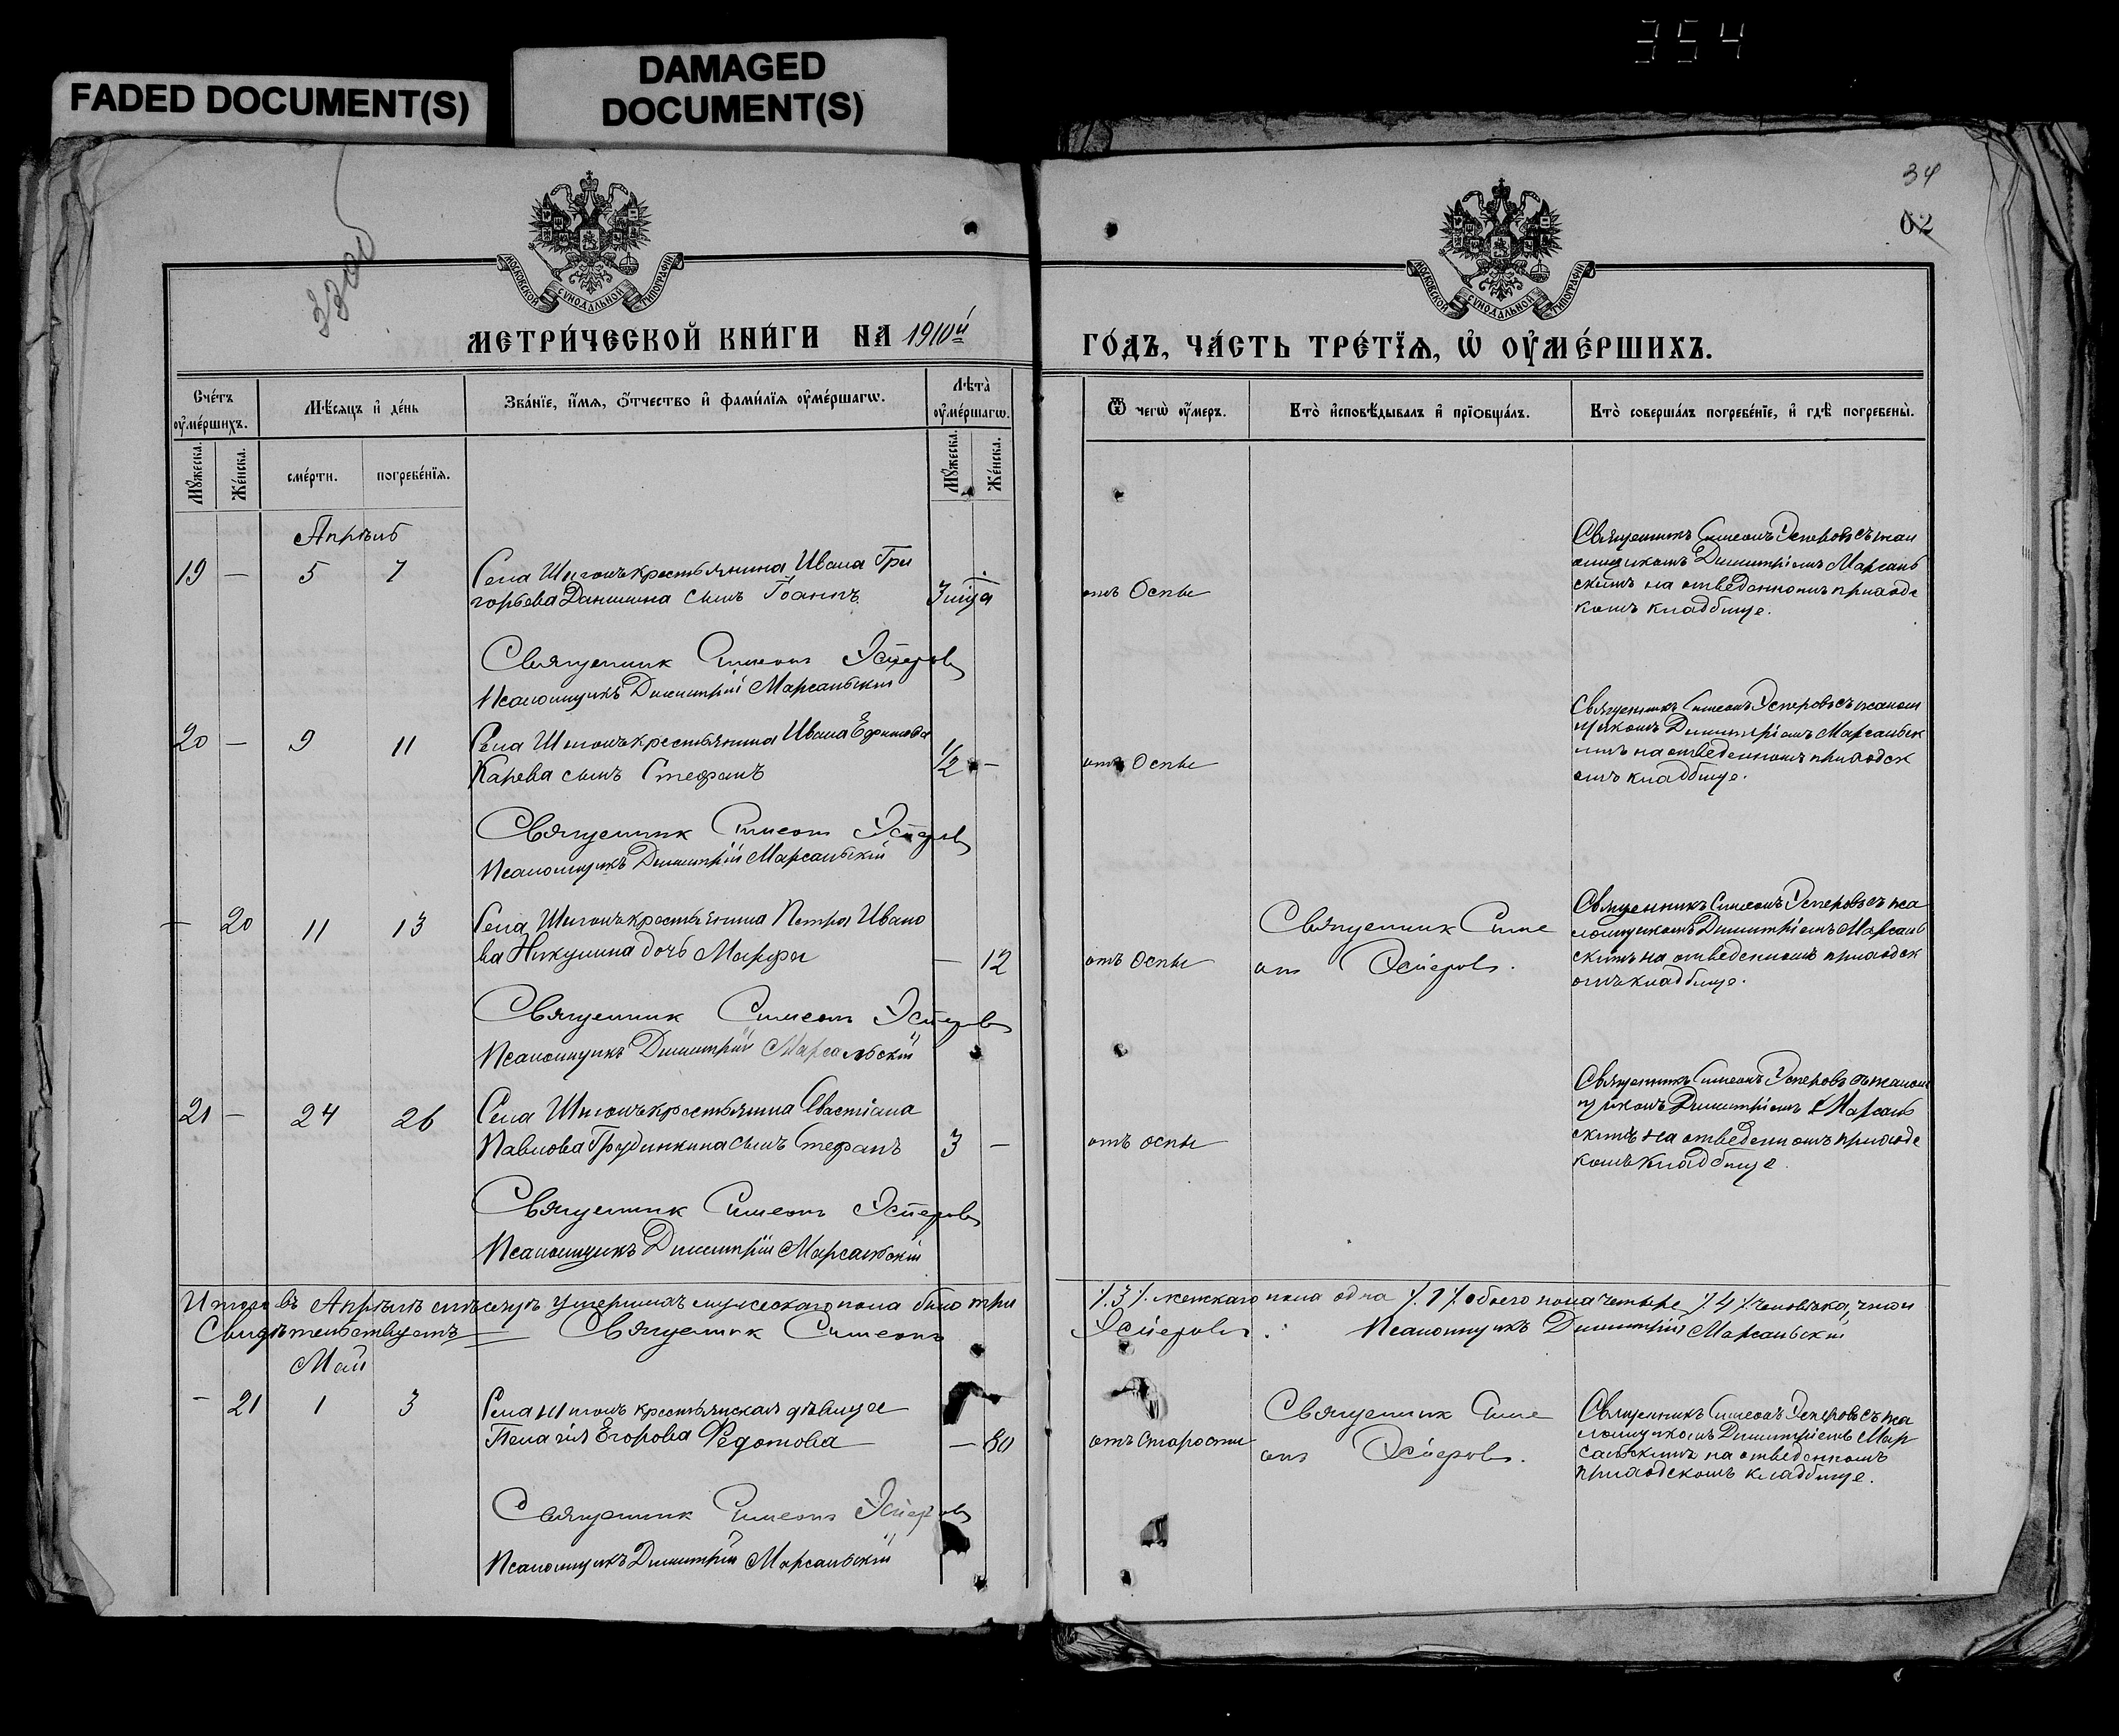 354
FADED DOCUMENT(S)
DAMAGED
DOCUMENT(S)
34
62
МОСКОВСКОЙ СѴНОДАЛЬНОЙ ТИПОГРАФІИ
МОСКОВСКОЙ СѴНОДАЛЬНОЙ ТИПОГРАФІИ
МЕТРИ́ЧЕСКОЙ КНИ́ГИ НА 1910й
ГО́ДЪ, ЧА́СТЬ ТРЕ́ТЇѦ, Ѡ҆ ОУ҆МЕ́РШИХЪ.
Сче́тъ оу҆ме́ршихъ.
Мѣ́сяцъ и҆ де́нь
Зва́нїе, и҆́мѧ, ѻ҆́тчество и҆ фами́лїѧ оу҆ме́ршагѡ.
Лѣта̀ оу҆ме́ршагѡ.
Ѿ чегѡ̀ оу҆́меръ.
Кто̀ и҆сповѣ́дывалъ и҆ прїѡбща́лъ.
Кто̀ соверша́лъ погребе́нїе, и҆ гдѣ̀ погребены̀.
Мꙋ́жеска.
Же́нска.
сме́рти.
погребе́нїѧ.
Мꙋ́жеска.
Же́нска.
Апрѣль
19 — 5 7 Села Шигонъ крестьянина Ивана Гри
горьева Даншина сынъ Іоаннъ. 3
Священник Симеон Эсперов
Псаломщикъ Димитрій Марсальскій
отъ Оспы
Священникъ Симеонъ Эсперовъ съ псал
омщикомъ Димитріемъ Марсаль
скимъ на отведенномъ приходс
комъ кладбище.
20 — 9 11 Села Шигонъ крестьянина Ивана Ефимова
Карева сынъ Стефанъ 1/2 —
Священник Симеон Эсперов
Псаломщикъ Димитрій Марсальскій
отъ Оспы
Священникъ Симеонъ Эсперовъ съ псалом
щикомъ Димитріемъ Марсальск
имъ на отведенномъ приходск
омъ кладбище.
— 20 11 13 Села Шигонъ крестьянина Петра Ивано
ва Никулина дочь Марфа — 12
Священник Симеон Эсперов
Псаломщикъ Димитрій Марсальскій
отъ Оспы
Священник Симе
он Эсперов.
Священникъ Симеонъ Эсперовъ съ пса
ломщикомъ Димитріемъ Марсаль
скимъ на отведенномъ приходск
омъ кладбище.
21 — 24 26 Села Шигонъ крестьянина Евастіана
Павлова Грудинкина сынъ Стефанъ 3 —
Священник Симеон Эсперов
Псаломщикъ Димитрій Марсальскій
отъ оспы
Священникъ Симеонъ Эсперовъ съ псалом
щикомъ Димитріемъ Марсаль
скимъ на отведенномъ приходс
комъ кладбище.
Итого въ Апрѣлѣ мѣсяцѣ умершихъ мужескаго пола было три
Свидѣтельствуетъ Священник Симеонъ
./.3./. женскаго пола одна ./.1./. обоего пола четыре ./.4./. человѣка, въ чем
Эсперов. Псаломщикъ Димитрій Марсальскій
Май
— 21 1 3 Села Шигонъ крестьянская дѣвица
Пелагія Егорова Федотова — 80
Священник Симеон Эсперов
Псаломщикъ Димитрій Марсальскій
отъ Старости
Священник Симе
он Эсперов.
Священникъ Симеонъ Эсперовъ съ пса
ломщикомъ Димитріемъ Мар
сальскимъ на отведенномъ
приходскомъ кладбище.